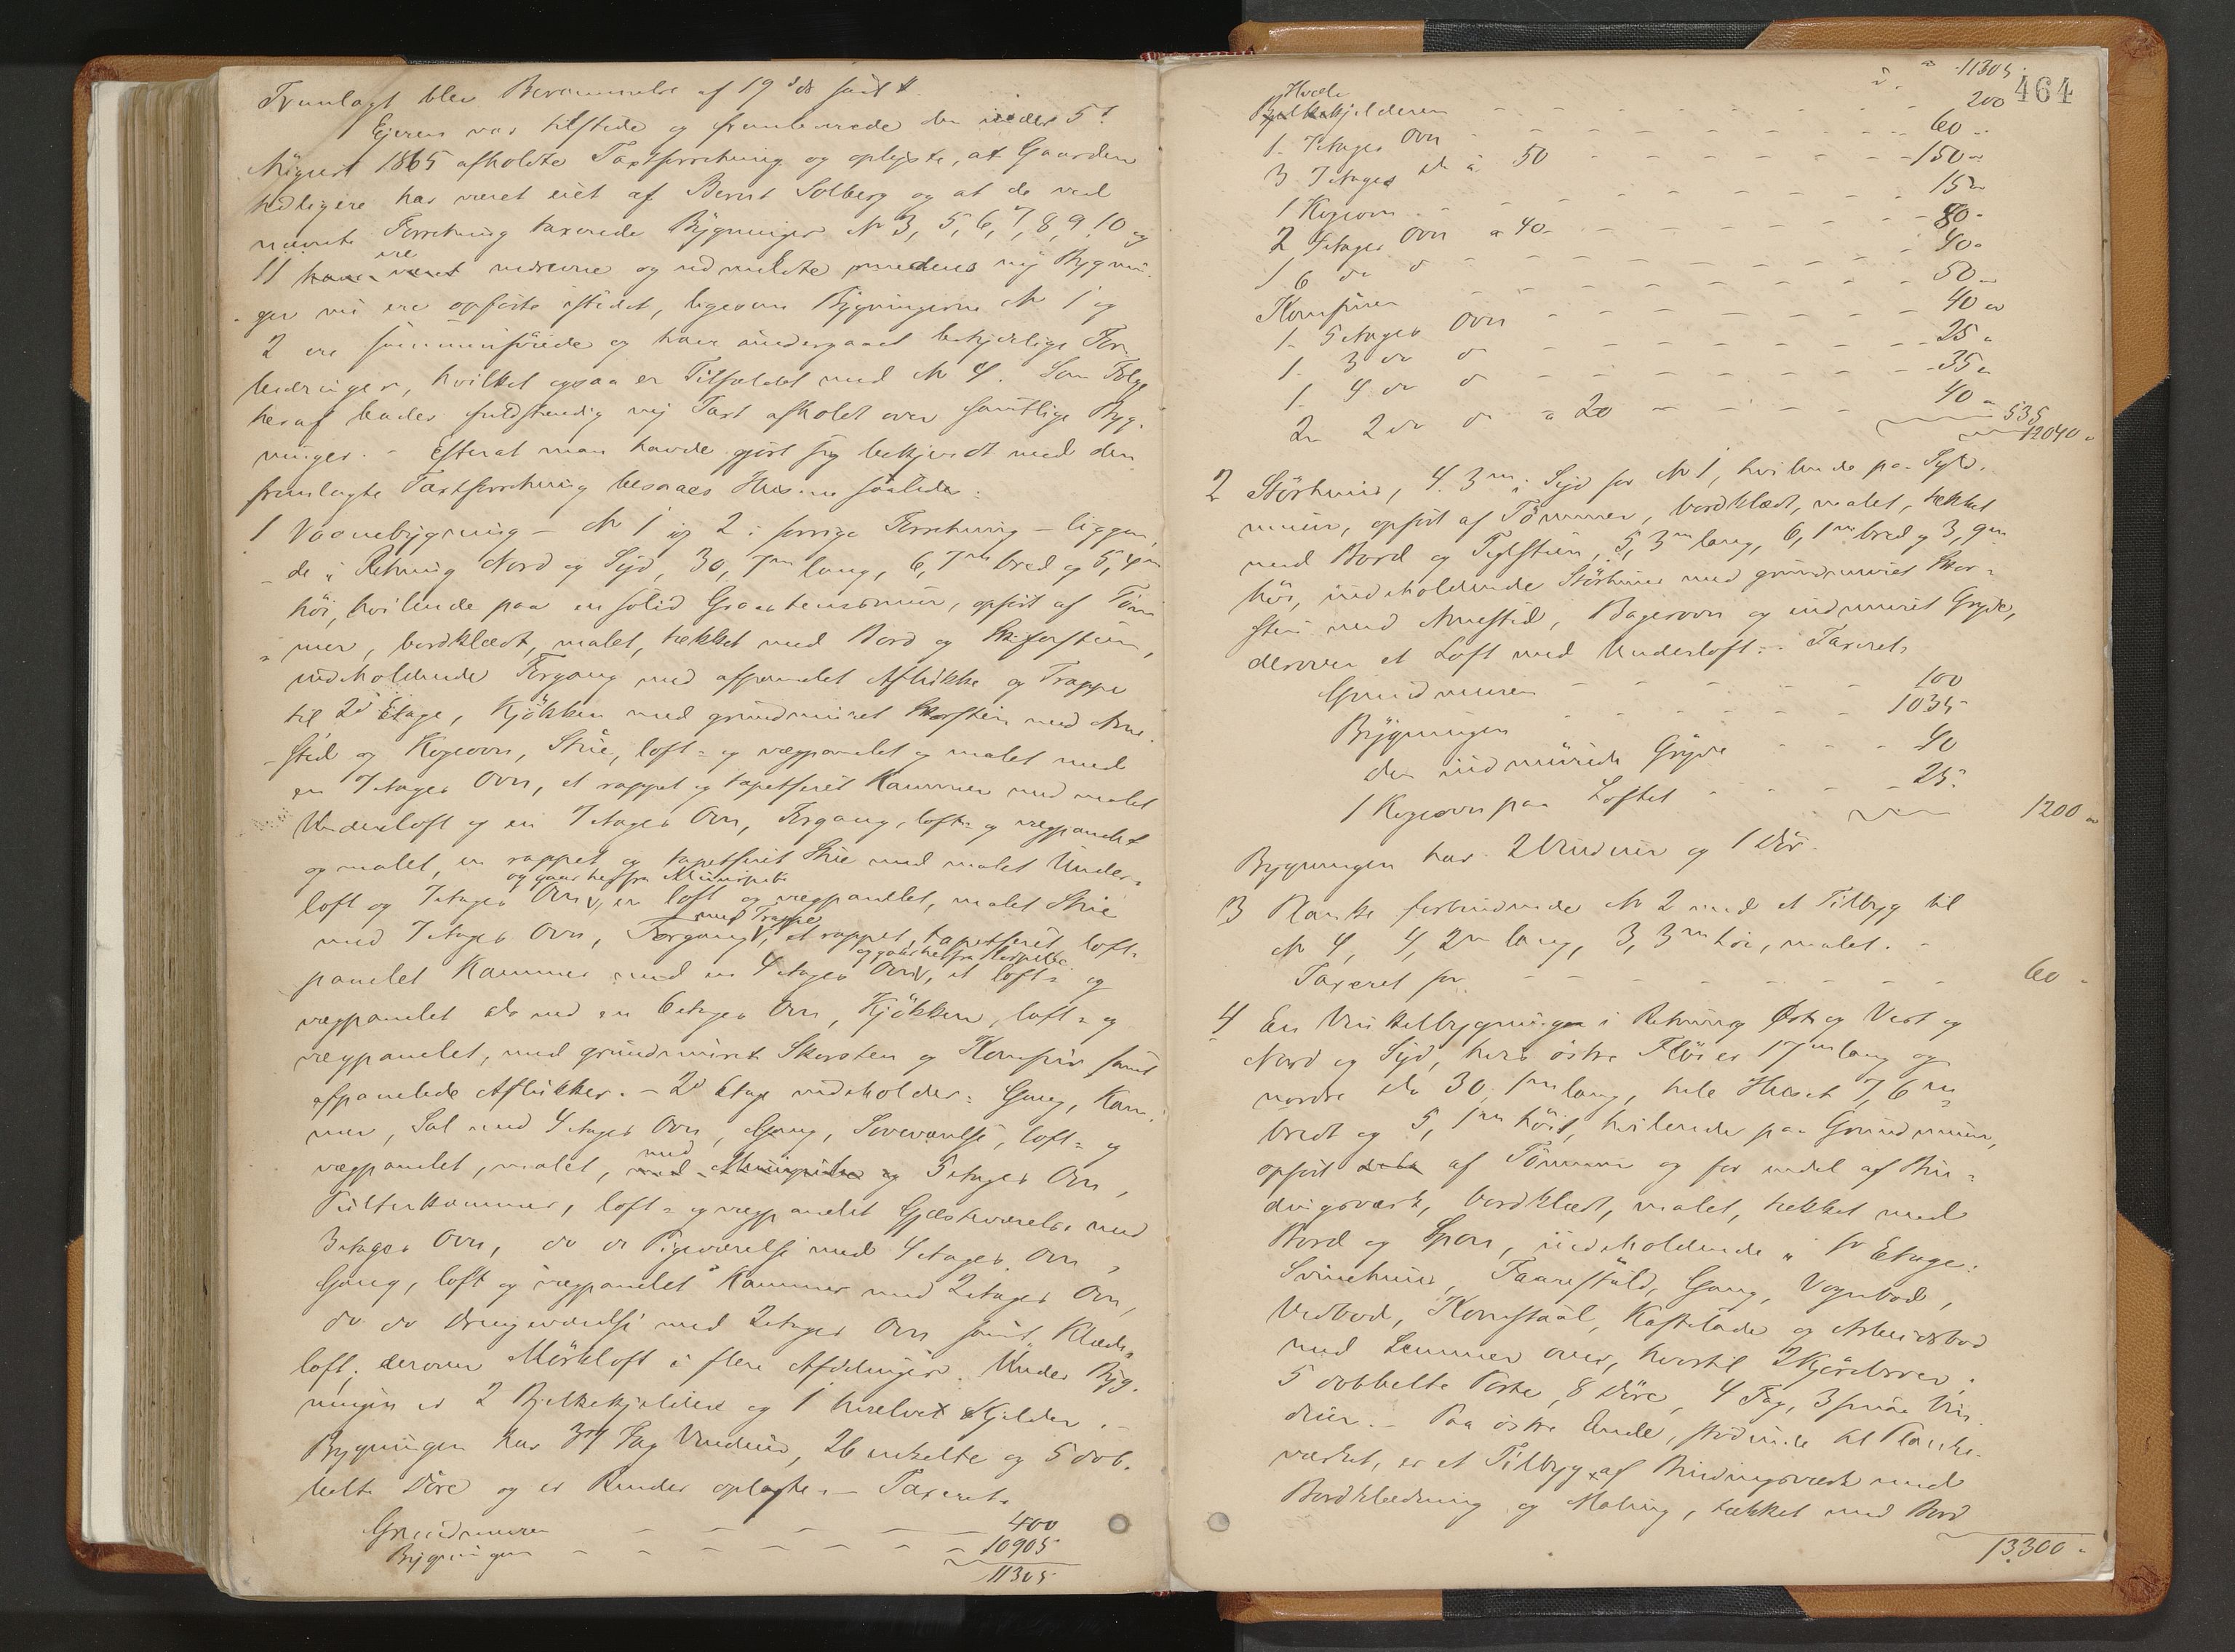 Fremlagt blev Berammelse af 19de
Ejeren var tilstede og fremlevede den under 5t
August 1865 afholdte Taxtforretning og oplyste, at Gaarden
tidligere har været eiet af Bernt Solberg og at de ved
nævnte Forretning taxerede Bygninger No 3, 5, 6, 7, 8, 9, 10 og
11 ere nedrevne og udmeldte medens ny Bygnin-
ger nu ere opførte istedet, ligesom Bygningerne No 1 og
2 ere sammenførede og have undergaaet betydelige For-
bedringer, hvilket ogsaa er Tilfældet med No 4. Som Følge
heraf bades fuldstændig ny Taxt afholdt over samtlige Byg-
ninger. - Efterat man havde gjort sig bekjendt med den
fremlagte Taxtforretning besaaes Husene saaledes:
1 Vaanebygning - No 1 og 2 i forrige Forretning - liggen-
de i Retning Nord og Syd, 30,7m lang, 6,7m bred og 5,4m
høi, hvilende paa en solid Graastensmuur, opført af Tøm-
mer, bordklædt, malet, tækket med Bord og Skifersteen,
indeholdende Forgang med afpanelet Aflukke og Trappe
til 2d Etage, Kjøkken med grundmuret Skorsten med Arne-
sted og Kogeovn, Stue, loft- og vægpanelet og malet med
en 7 Etages Ovn, et rappet og tapetseret Kammer med malet
Underloft og en 7 Etages Ovn, Forgang, loft- og vægpanelet
og malet, en rappet og tapetseret Stue med malet Under-
loft og 7 Etages Ovn, en loft og vægpanelet, malet Stue
med 7 Etages Ovn, Forgang med Trappe, et rappet, tapetseret loft-
panelet Kammer med en 4 Etages Ovn, et loft- og
vægpanelet do med en 6 Etages Ovn, Kjøkken, loft- og
vægpanelet, med grundmuret Skorsten og Komfur samt
afpanelede Aflukker. - 2d Etage indeholder: Gang, Kam-
mer, Sal med 4 Etages Ovn, Gang, Soveværelse, loft- og
vægpanelet, malet, med 5 Etages Ovn,
Pulterkammer, loft- og vægpanelet Gjæsteværelse med
3 Etages Ovn, do do Pigeværelse med 4 Etages Ovn,
Gang, loft og vægpanelet Kammer med 2 Etages Ovn,
do do Drengeværelse med 2 Etages Ovn samt Klæde-
loft, derover Mørkloft i flere Afdelinger. Under Byg-
ningen er 2 Bjelkekjeldere og 1 hvælvet Kjelder. -
Bygningen har 37 Fag Vinduer, 26 enkelte og 5 dob-
belte Døre og er Runder oplagte. - Taxeret
Grundmuren - - - - - - 400
Bygningen - - - - - - - 10905
11305
464
11305
Hvælvkjelderen - - - - - 200
1- 7 Etages Ovn - - - - - 60 -
3 7 Etages do à 50 - - - - - 150 -
1 Kogeovn - - - - - 15 -
2 4 Etages Ovn à 40 - - - - - 80 -
1 6 do d - - - - - 40 -
Komfuren - - - - - 50 -
1- 5 Etages Ovn - - - - - 40 -
1- 3 do d - - - - - 25 -
1- 4 do d - - - - - 35 -
2- 2 do d à 20 - - - - - 40 -
535
12040 -
2 Størhuus, 4.3m i Syd for No 1, hvilende paa Syld-
muur, opført af Tømmer, bordklædt, malet, tækket
med Bord og Teglsteen, 5,3m lang, 6,1m bred og 3,9m
høi, indeholdende Størhuus med grundmuret Skor-
sten med Arnested, Bagerovn og indmuret Gryde,
derover et Loft med Underloft. - Taxeret
Grundmuren - - - - - 100
Bygningen - - - - - 1035 -
den indmurede Gryde - - - 40
1 Kogeovn paa Loftet - - - - 25 -
1200 -
Bygningen har 2 Vinduer og 1 Dør.
3 Planke forbindende No 2 med et Tilbyg til
No 4, 4,2m lang, 3,3m høi, malet. -
Taxeret for - - - - - - - - 60 -
4 En Vinkelbygning i Retning Øst og Vest og
Nord og Syd, hvis østre Fløi er 17m lang og
nordre do 30,1m lang, hele Huset 7,6m
bredt og 5,1m høit, hvilende paa Grundmuur,
opført af Tømmer og for endel af Bin-
dingsværk, bordklædt, malet, tækket med
Bord og Spon, indeholdende i 1ste Etage:
Sviinehuus, Faarefjøs, Gang, Vognbod,
Vedbod, Kornstaal, Kastelade og Arbeidsbod
med Lemmer over, hvortil 2 Kjørebroer;
5 dobbelte Porte, 8 Døre, 4 Fag, 3 smaa Vin-
duer. - Paa østre Ende, stødende til Planke-
værket, er et Tilbyg af Bindingsværk med
Bordklædning og Maling, tækket med Bord
13300 -